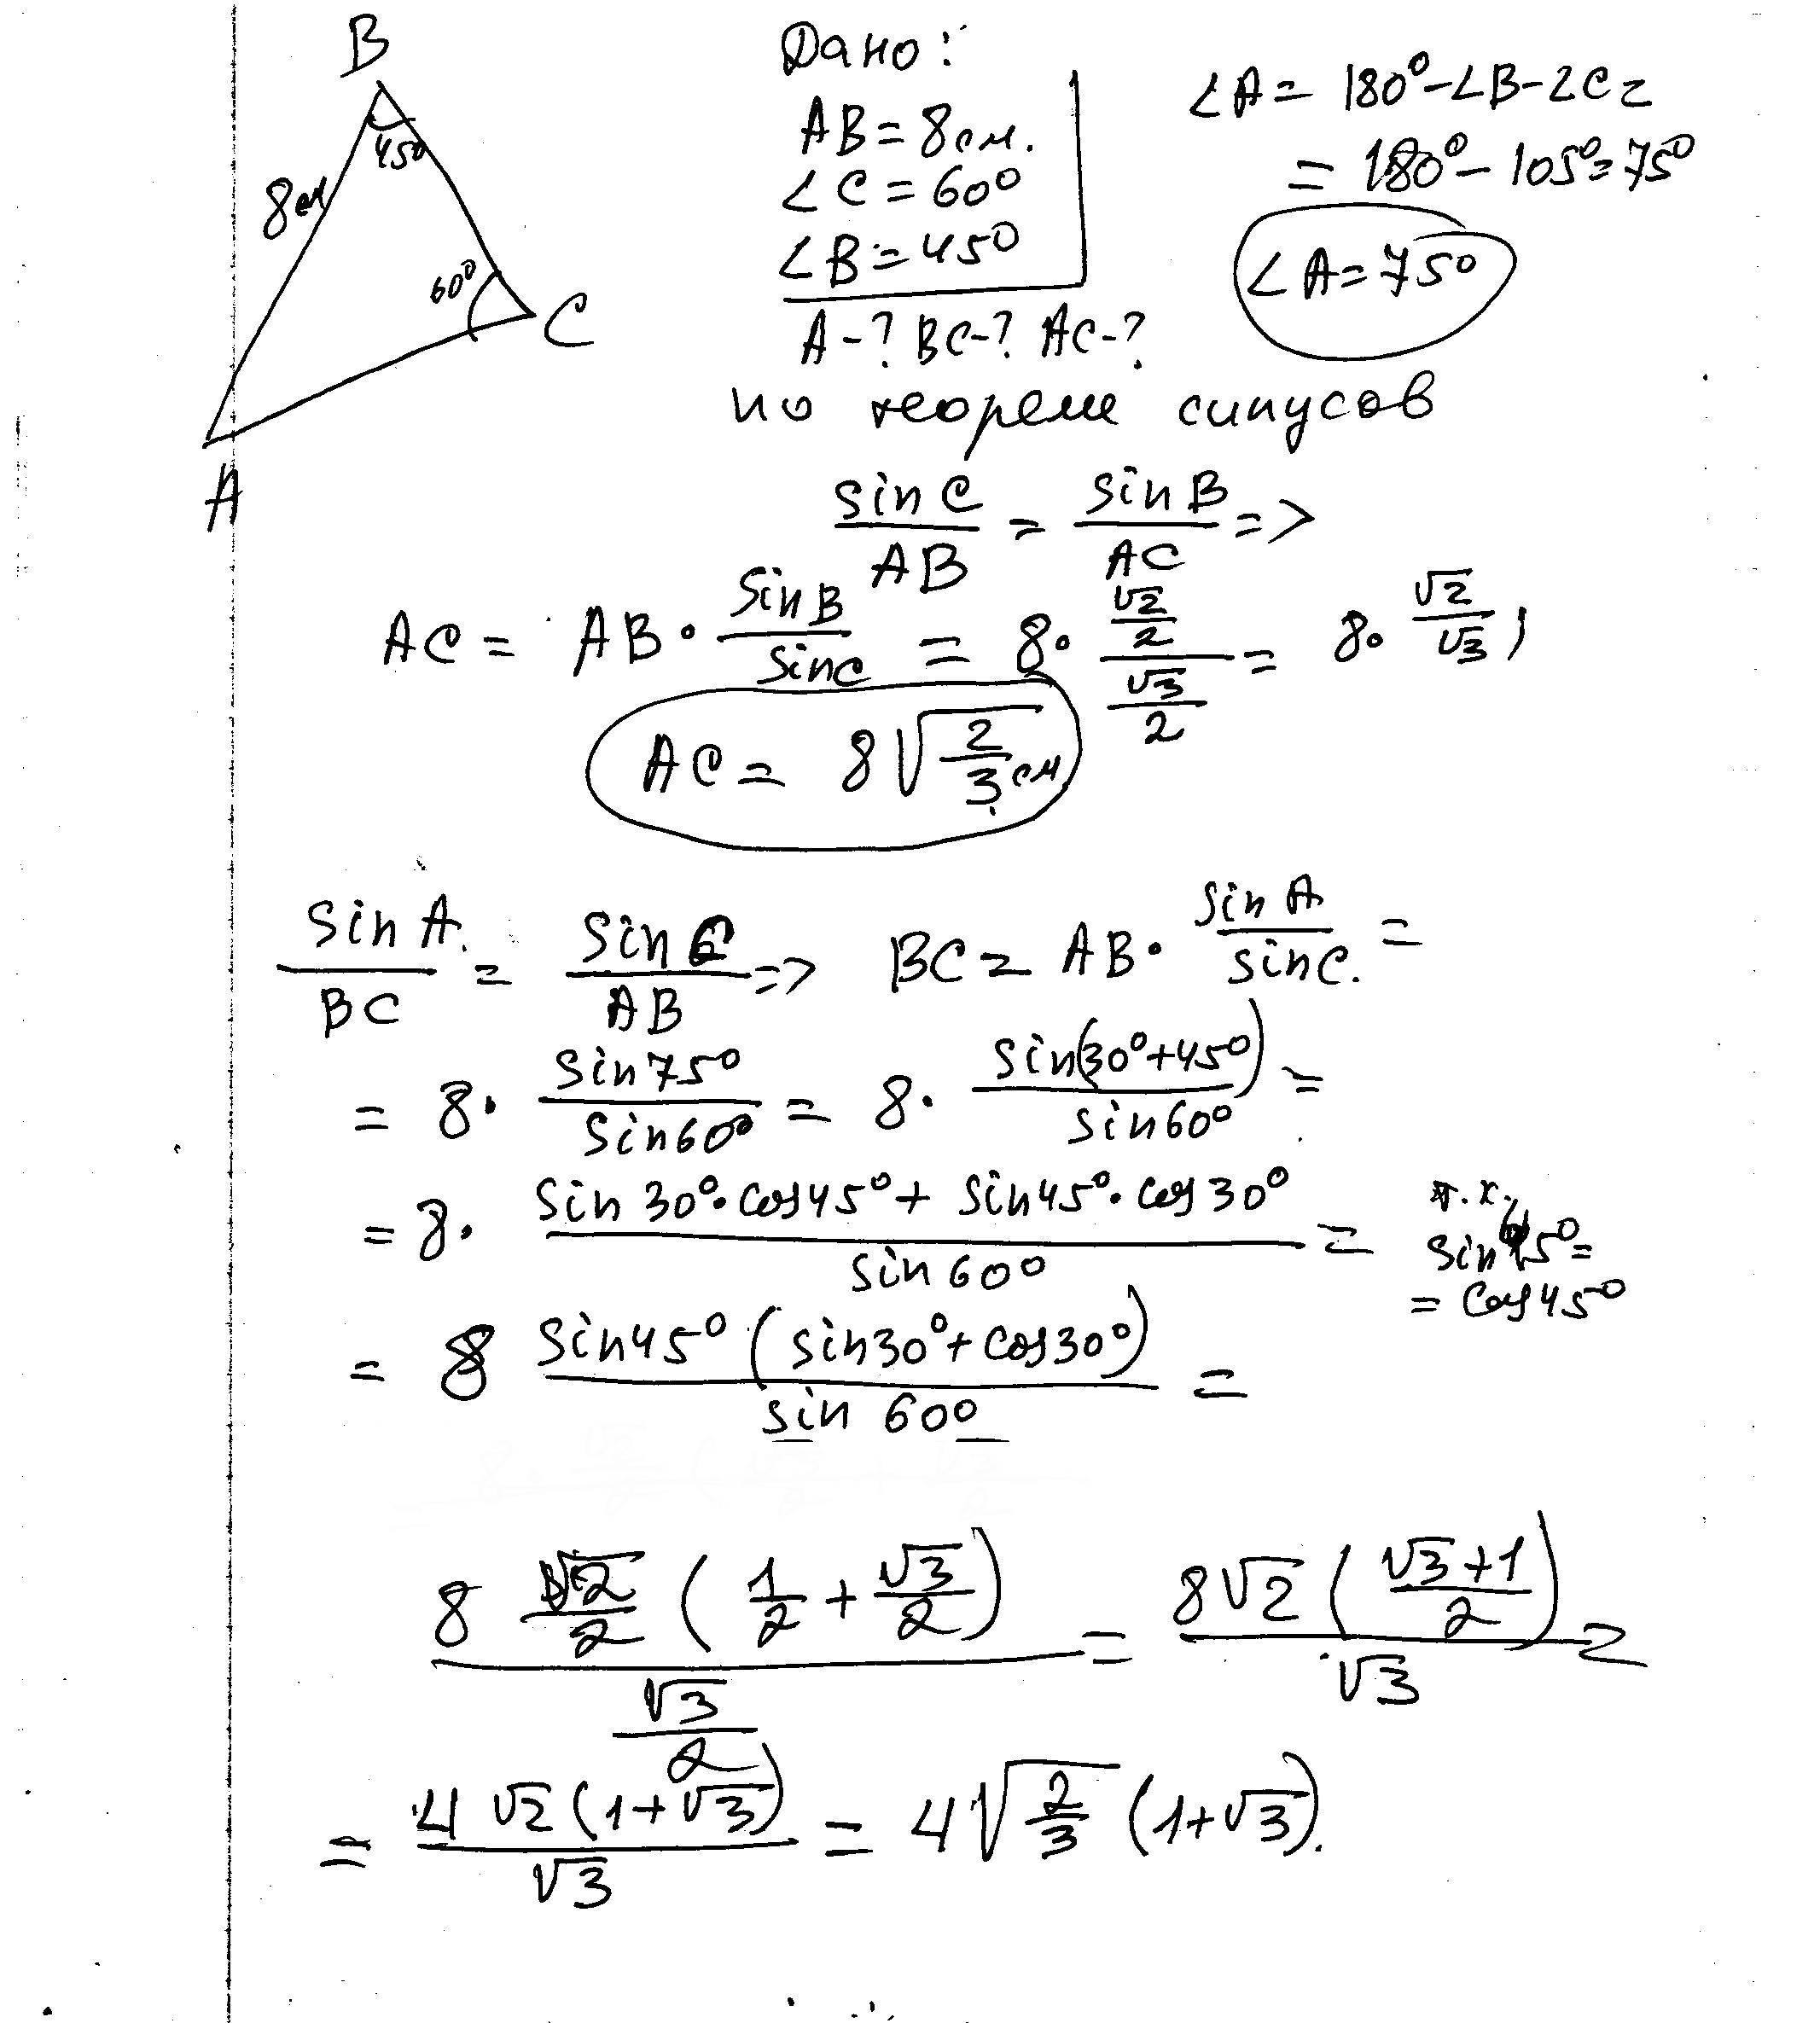 B
45°
8см
60°
C
A
Дано:
AB = 8см.
∠C = 60°
∠B = 45°
A-? BC-? AC-?
∠A = 180°-∠B-∠C =
= 180° - 105° = 75°
∠A = 75°
по теореме синусов
sin C / AB = sin B / AC =>
AC = AB · sin B / sin C = 8 · (√2/2) / (√3/2) = 8 · √2/√3 ;
AC = 8√(2/3) см
sin A / BC = sin C / AB => BC = AB · sin A / sin C. =
= 8 · sin 75° / sin 60° = 8 · sin(30°+45°) / sin 60° =
= 8 · (sin 30° · cos 45° + sin 45° · cos 30°) / sin 60° =
т.к.
sin 45° =
= cos 45°
= 8 sin 45° (sin 30° + cos 30°) / sin 60° =
8 √2/2 (1/2 + √3/2) / (√3/2) = 8√2 ((√3+1)/2) / √3 =
= 4 √2 (1+√3) / √3 = 4√(2/3) (1+√3).